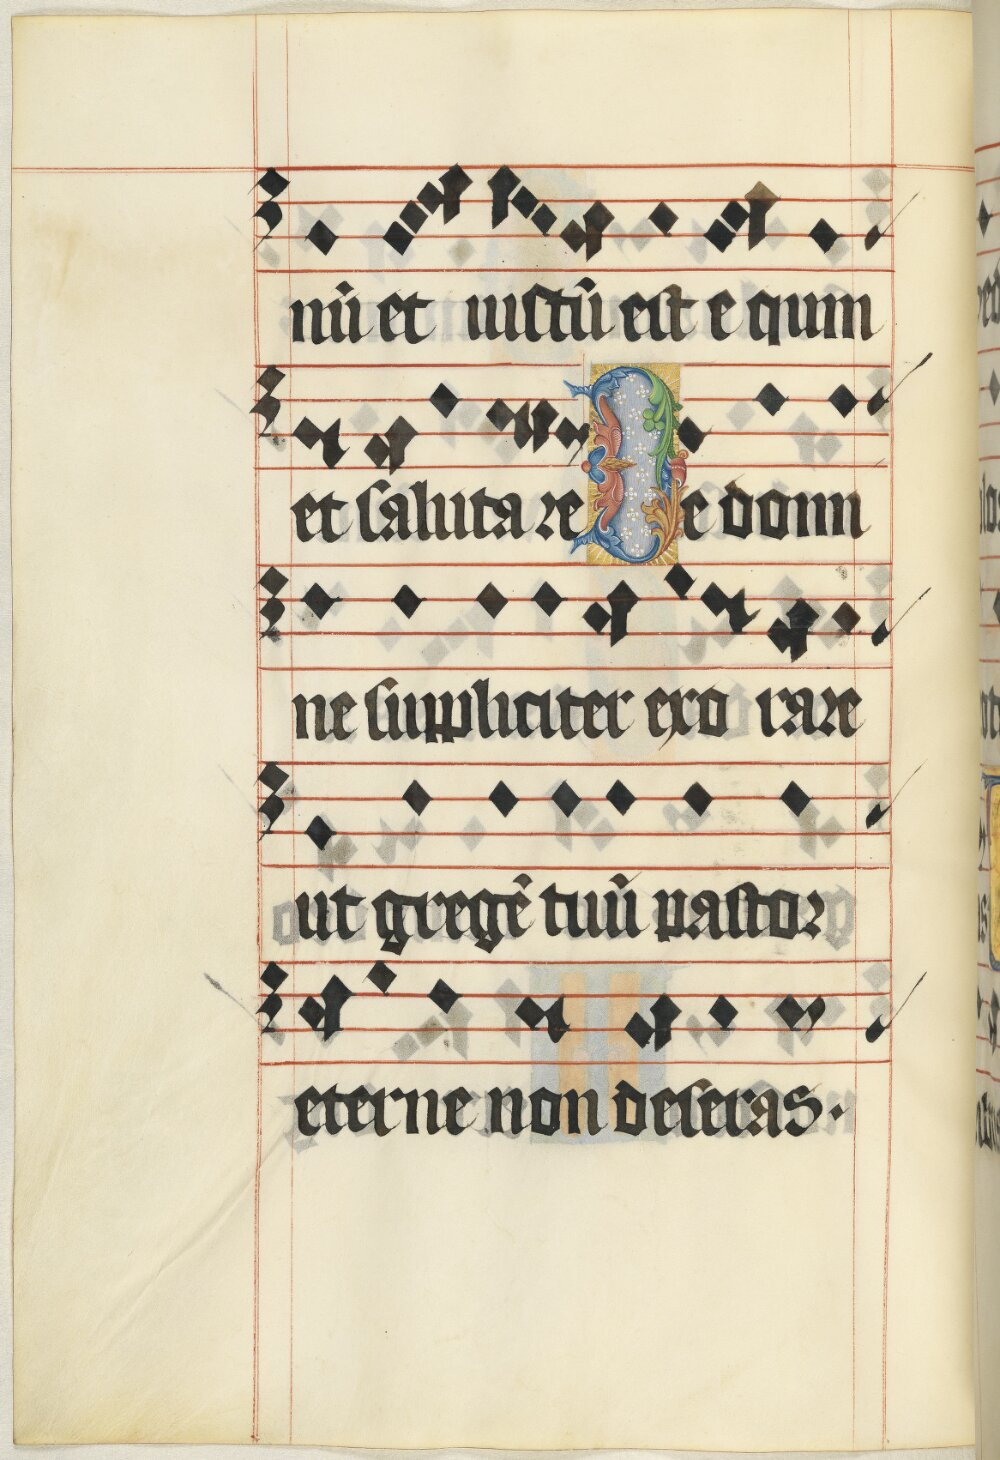 nū et iustū est e qum
et saluta re Te domi
ne suppliciter exo rare
ut gregē tuū pastor
eterne non deseras.